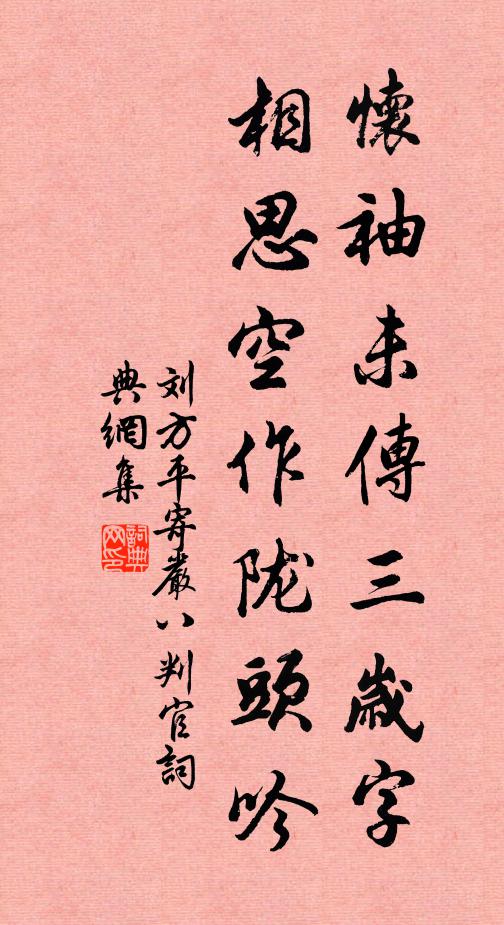 懷袖未傳三歲字
相思空作陇頭吟
刘方平寄嚴八判官詞
典網集
詞典
网印